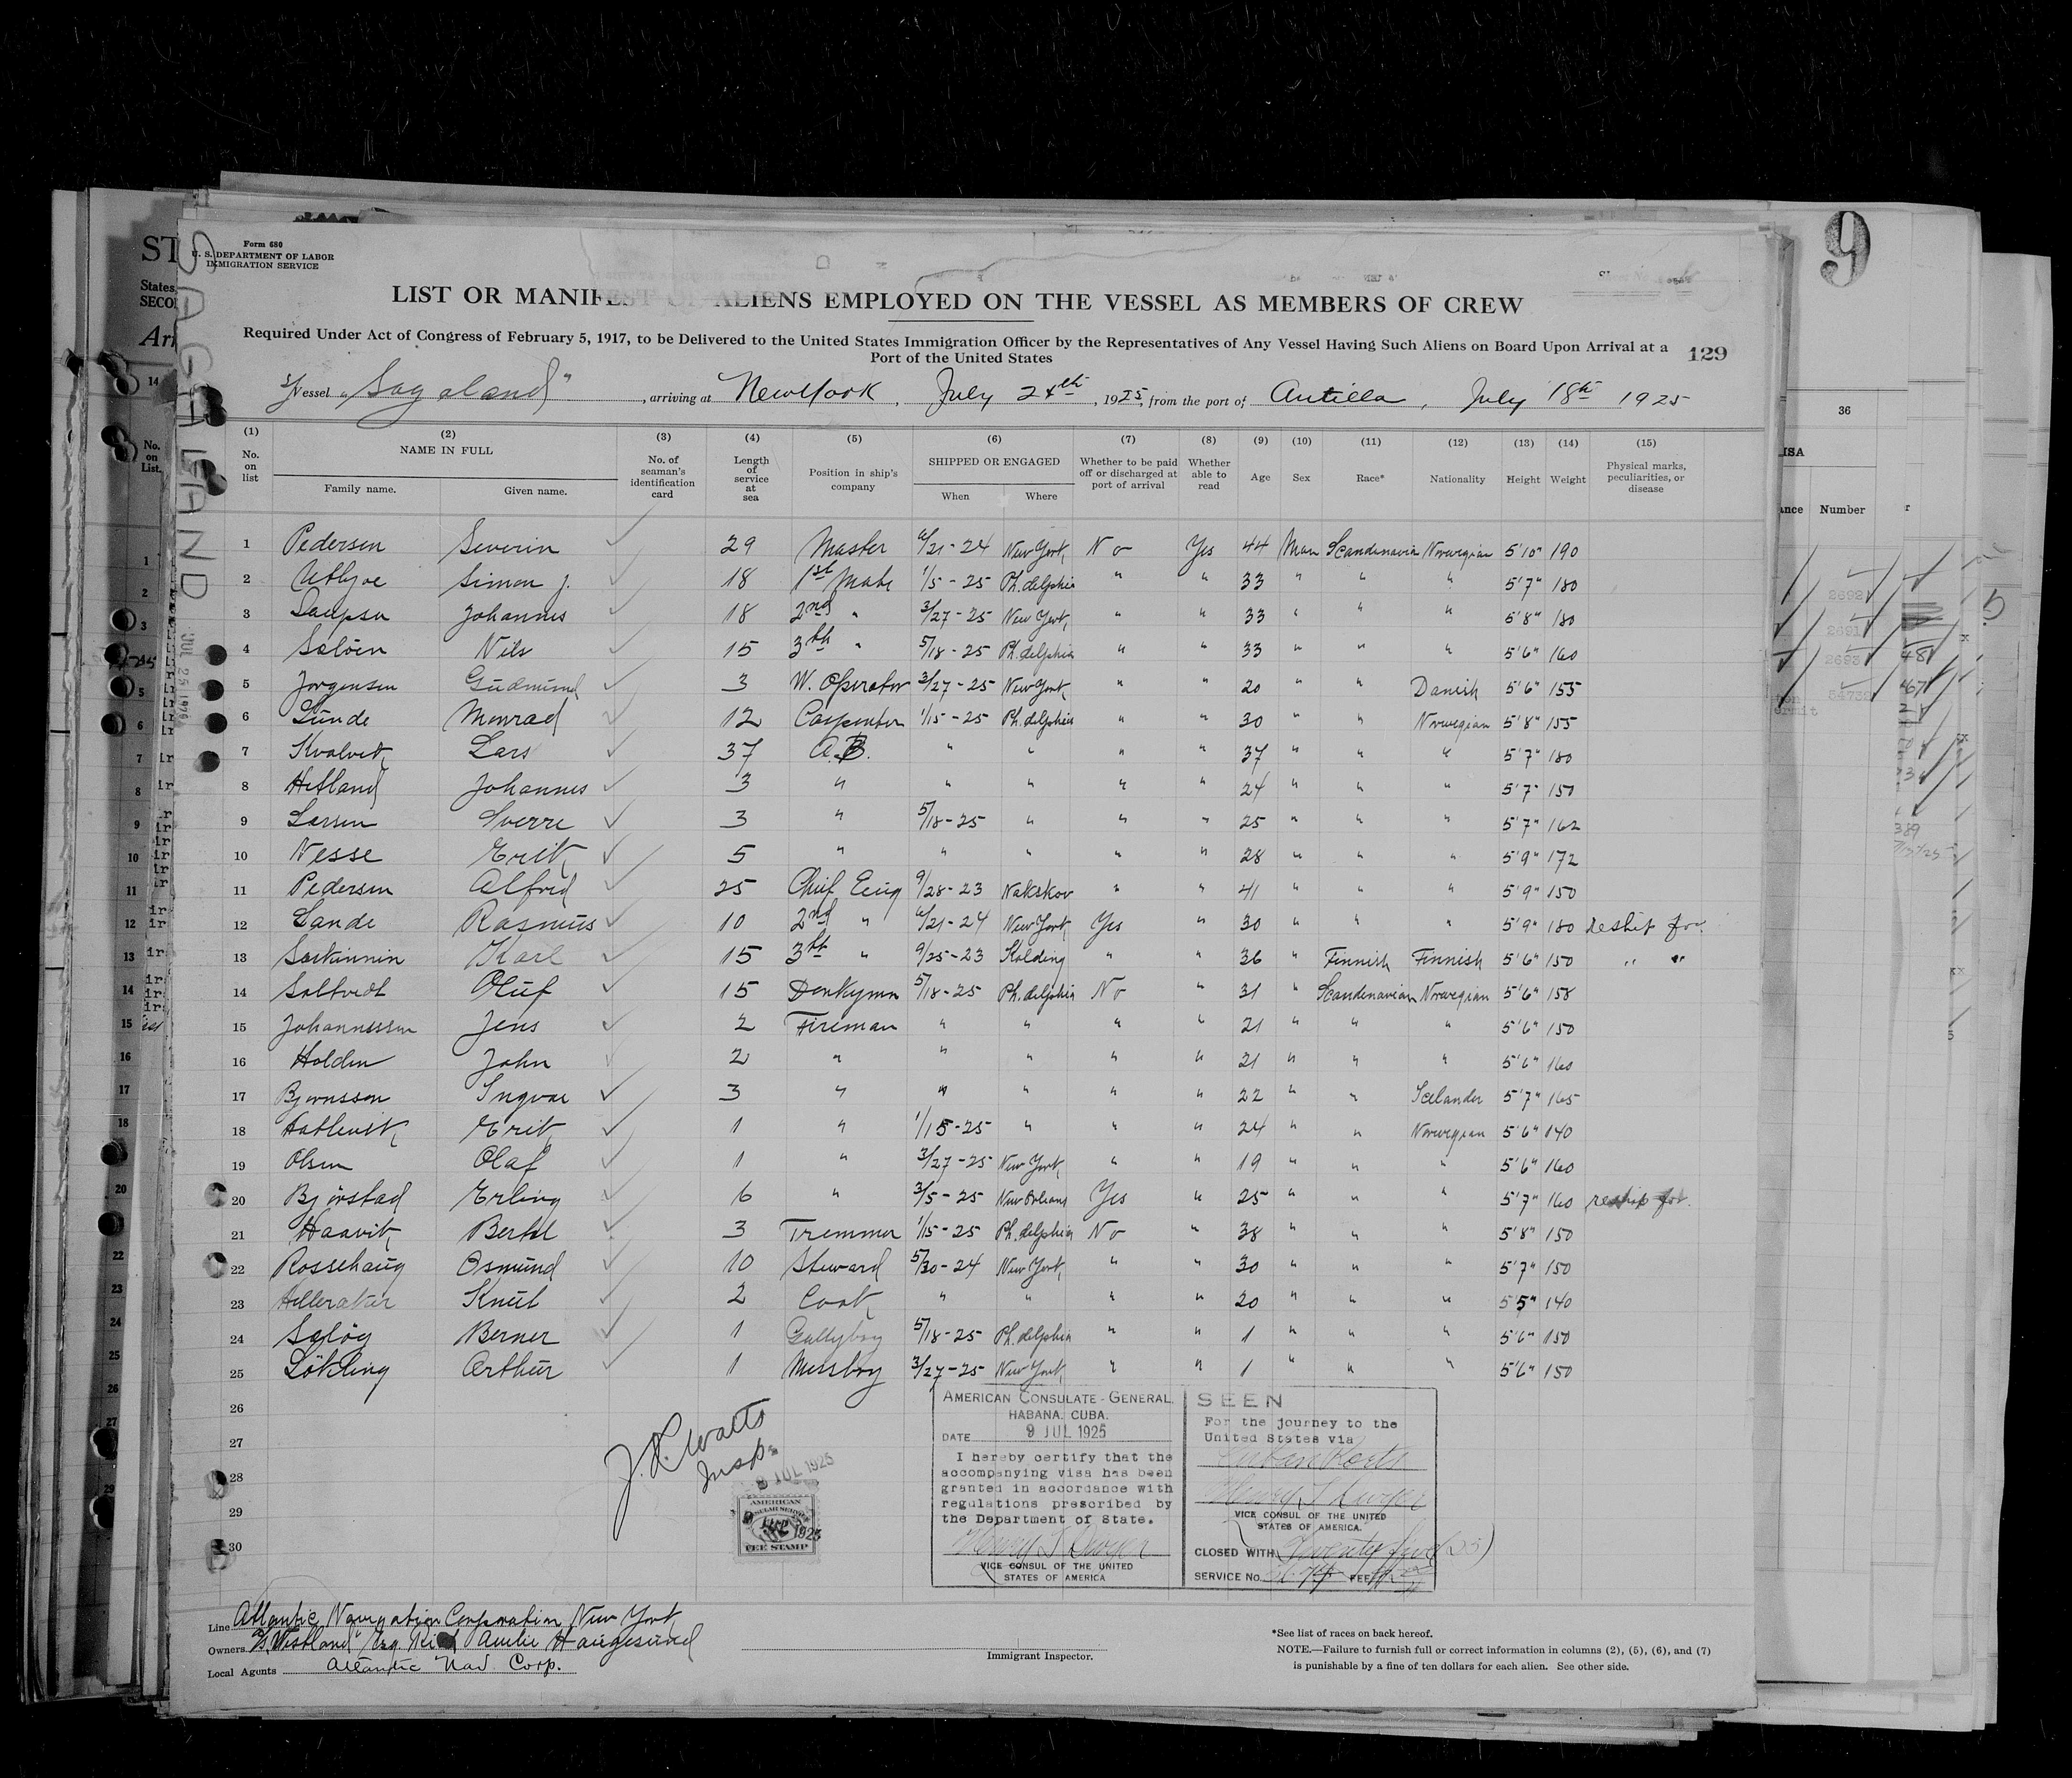 Form 680
U. S. DEPARTMENT OF LABOR
IMMIGRATION SERVICE
SAGALAND
JUL 25 1925
LIST OR MANIFEST OF ALIENS EMPLOYED ON THE VESSEL AS MEMBERS OF CREW
Required Under Act of Congress of February 5, 1917, to be Delivered to the United States Immigration Officer by the Representatives of Any Vessel Having Such Aliens on Board Upon Arrival at a
Port of the United States
129
S/S Vessel "Sagaland", arriving at New York, July 24th, 1925, from the port of Antilla, July 18th 1925
(1) (2) (3) (4) (5) (6) (7) (8) (9) (10) (11) (12) (13) (14) (15)
No. on list
NAME IN FULL
Family name. Given name.
No. of seaman's identification card
Length of service at sea
Position in ship's company
SHIPPED OR ENGAGED
When Where
Whether to be paid off or discharged at port of arrival
Whether able to read
Age Sex Race* Nationality Height Weight
Physical marks, peculiarities, or disease
1 Pedersen Severin 29 Master 6/21-24 New York No Yes 44 Man Scandinavia Norwegian 5'10" 190
2 Simon J. 18 1st Mate 1/5-25 Ph.delphia " " 33 " " " 5'7" 180
3 Johannes 18 2nd " 3/27-25 New York " " 33 " " " 5'8" 180
4 Nils 15 3th " 5/18-25 Ph.delphia " " 33 " " " 5'6" 160
5 Jorgensen Gudmund 3 W. Operator 3/27-25 New York " " 20 " " Danish 5'6" 155
6 Lunde Monrad 12 Carpenter 1/15-25 Ph.delphia " " 30 " " Norwegian 5'8" 155
7 Kvalvik Lars 37 A.B. " " " " 37 " " " 5'7" 180
8 Hetland Johannes 3 " " " " " 24 " " " 5'7" 150
9 Larsen Sverre 3 " 5/18-25 " " " 25 " " " 5'7" 162
10 Nesse Erik 5 " " " " " 28 " " " 5'9" 172
11 Pedersen Alfred 25 Chief Eeng 9/28-23 Nakskov " " 41 " " " 5'9" 150
12 Sande Rasmus 10 2nd " 6/21-24 New York Yes " 30 " " " 5'9" 180 reship for.
13 Karl 15 3th " 9/25-23 Kolding " " 36 " Finnish Finnish 5'6" 150 " "
14 Saltvedt Oluf 15 Donkymn 5/18-25 Ph.delphia No " 31 " Scandinavian Norwegian 5'6" 158
15 Johannessen Jens 2 Fireman " " " " 21 " " " 5'6" 150
16 Holden John 2 " " " " " 21 " " " 5'6" 160
17 Bjornsson Ingvar 3 " " " " " 22 " " Icelander 5'7" 165
18 Hatlevik Erik 1 " 1/15-25 " " " 24 " " Norwegian 5'6" 140
19 Olsen Olaf 1 " 3/27-25 New York " " 19 " " " 5'6" 160
20 Bjørstad Erling 6 " 3/5-25 New Orleans Yes " 25 " " " 5'7" 160 reship for.
21 Haavik Bertel 3 Tremmer 1/15-25 Ph.delphia No " 38 " " " 5'8" 150
22 Rossehaug Osmund 10 Steward 5/30-24 New York " " 30 " " " 5'7" 150
23 Knut 2 Cook " " " " 20 " " " 5'5" 140
24 Berner 1 Gallyboy 5/18-25 Ph.delphia " " 1 " " " 5'6" 150
25 Løkling Arthur 1 Messboy 3/27-25 New York " " 1 " " " 5'6" 150
26
27
28
29
30
J. L. Watts
Insp.
9 JUL 1925
AMERICAN
FEE STAMP
AMERICAN CONSULATE-GENERAL,
HABANA, CUBA.
DATE 9 JUL 1925
I hereby certify that the
accompanying visa has been
granted in accordance with
regulations prescribed by
the Department of State.
VICE CONSUL OF THE UNITED
STATES OF AMERICA
SEEN
For the journey to the
United States via
Cuban Ports
VICE CONSUL OF THE UNITED
STATES OF AMERICA.
CLOSED WITH Twenty five (25)
SERVICE No. FEE
Line Atlantic Navigation Corporation New York
Owners Haugesund
Local Agents Atlantic Nav. Corp.
Immigrant Inspector.
*See list of races on back hereof.
NOTE.—Failure to furnish full or correct information in columns (2), (5), (6), and (7)
is punishable by a fine of ten dollars for each alien. See other side.
9
36
Number